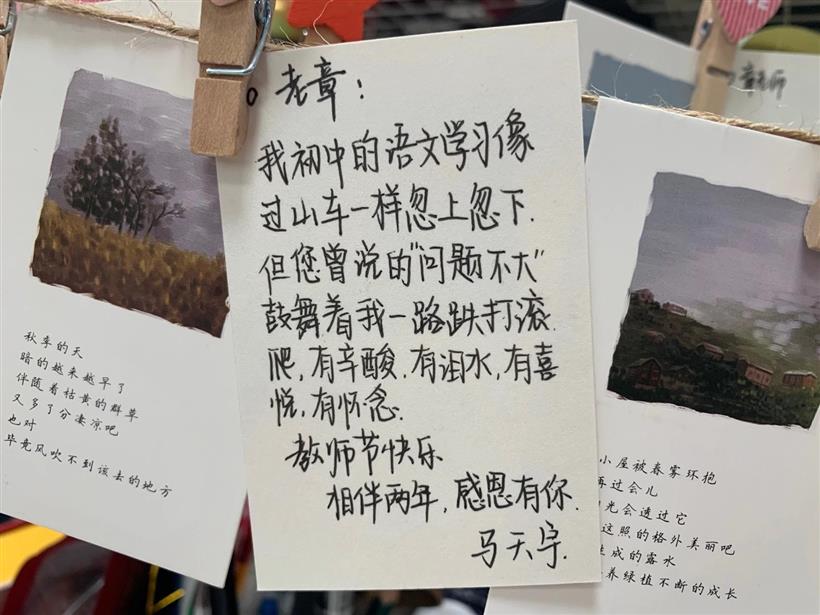 老章：
我初中的语文学习像
过山车一样忽上忽下.
但您曾说的"问题不大"
鼓舞着我一路跌打滚
爬,有辛酸,有泪水,有喜
悦,有怀念.
教师节快乐
相伴两年,感恩有你.
马天宇.
秋季的天
暗的越来越早了
伴随着枯黄的群草
又多了分凄凉吧
也对
毕竟风吹不到该去的地方
小屋被春雾环抱
再过会儿
光会透过它
这照的格外美丽吧
成的露水
养绿植不断的成长
章老师